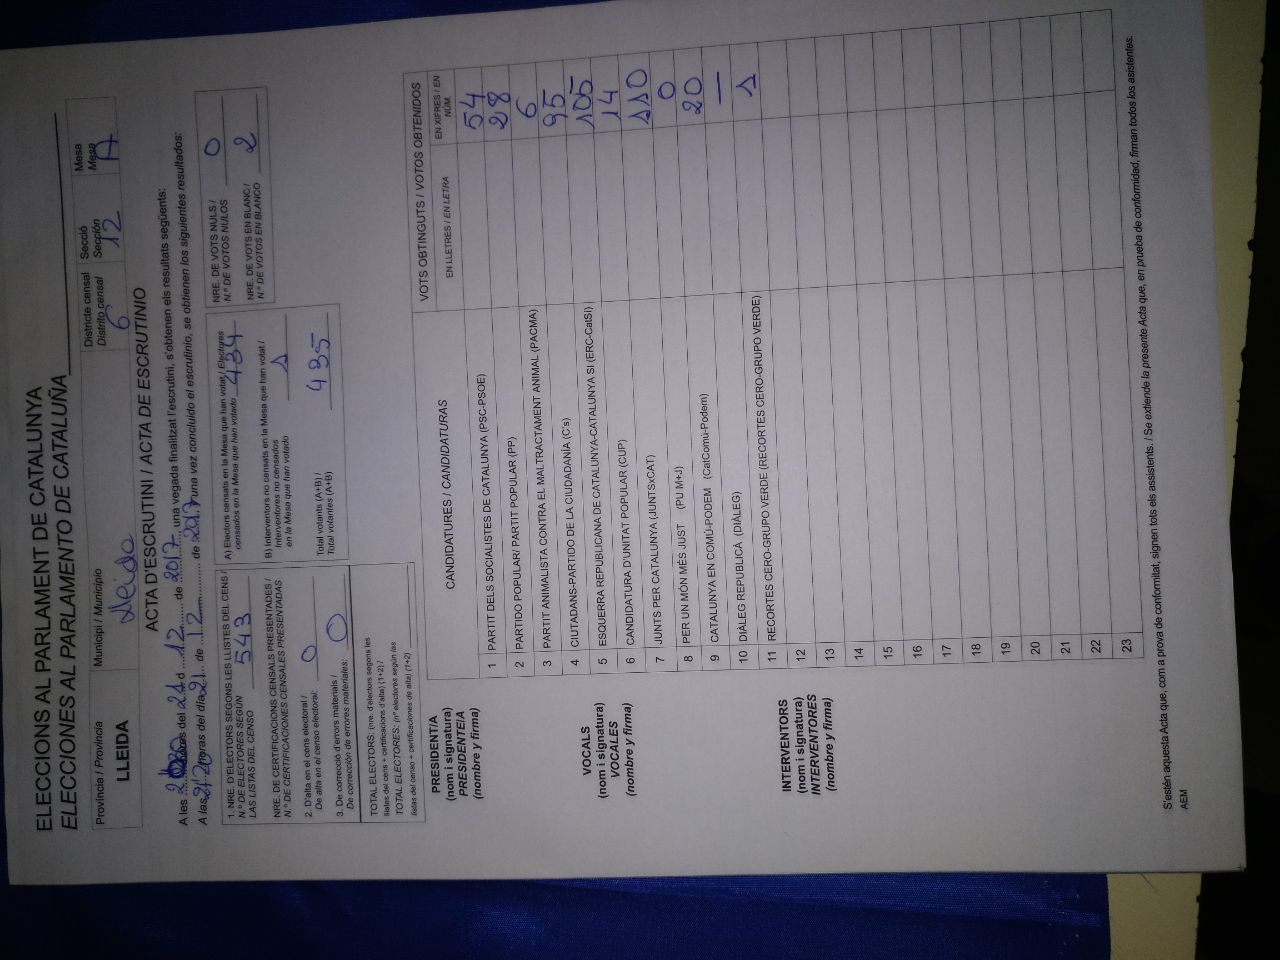 ELECCIONS AL PARLAMENT DE CATALUNYA
ELECCIONES AL PARLAMENTO DE CATALUÑA
Província / Provincia
LLEIDA
Municipi / Municipio
Lleida
Districte censal
Distrito censal
6
Secció
Sección
12
Mesa
Mesa
A
ACTA D'ESCRUTINI / ACTA DE ESCRUTINIO
A les hores del 21 d 12 de 2017, una vegada finalitzat l'escrutini, s'obtenen els resultats següents:
A las horas del día 21 de 12 de 2017, una vez concluido el escrutinio, se obtienen los siguientes resultados:
1. NRE. D'ELECTORS SEGONS LES LLISTES DEL CENS /
N.º DE ELECTORES SEGÚN
LAS LISTAS DEL CENSO 543
NRE. DE CERTIFICACIONS CENSALS PRESENTADES /
N.º DE CERTIFICACIONES CENSALES PRESENTADAS
2. D'alta en el cens electoral /
De alta en el censo electoral: 0
3. De correcció d'errors materials /
De corrección de errores materiales: 0
TOTAL ELECTORS: (nre. d'electors segons les
llistes del cens + certificacions d'alta) (1+2) /
TOTAL ELECTORES: (nº electores según las
listas del censo + certificaciones de alta) (1+2)
A) Electors censats en la Mesa que han votat / Electores
censados en la Mesa que han votado 434
B) Interventors no censats en la Mesa que han votat /
Interventores no censados
en la Mesa que han votado 1
Total votants (A+B) /
Total votantes (A+B) 435
NRE. DE VOTS NULS /
N.º DE VOTOS NULOS 0
NRE. DE VOTS EN BLANC /
N.º DE VOTOS EN BLANCO 2
CANDIDATURES / CANDIDATURAS
VOTS OBTINGUTS / VOTOS OBTENIDOS
EN LLETRES / EN LETRA
EN XIFRES / EN NÚM.
1 PARTIT DELS SOCIALISTES DE CATALUNYA (PSC-PSOE) 54
2 PARTIDO POPULAR/ PARTIT POPULAR (PP) 28
3 PARTIT ANIMALISTA CONTRA EL MALTRACTAMENT ANIMAL (PACMA) 6
4 CIUTADANS-PARTIDO DE LA CIUDADANÍA (C's) 95
5 ESQUERRA REPUBLICANA DE CATALUNYA-CATALUNYA SÍ (ERC-CatSí) 105
6 CANDIDATURA D'UNITAT POPULAR (CUP) 14
7 JUNTS PER CATALUNYA (JUNTSxCAT) 110
8 PER UN MÓN MÉS JUST (PU M+J) 0
9 CATALUNYA EN COMÚ-PODEM (CatComú-Podem) 20
10 DIÀLEG REPUBLICÀ (DIÀLEG) —
11 RECORTES CERO-GRUPO VERDE (RECORTES CERO-GRUPO VERDE) 1
12
13
14
15
16
17
18
19
20
21
22
23
PRESIDENT/A
(nom i signatura)
PRESIDENTE/A
(nombre y firma)
VOCALS
(nom i signatura)
VOCALES
(nombre y firma)
INTERVENTORS
(nom i signatura)
INTERVENTORES
(nombre y firma)
S'estén aquesta Acta que, com a prova de conformitat, signen tots els assistents. / Se extiende la presente Acta que, en prueba de conformidad, firman todos los asistentes.
AEM